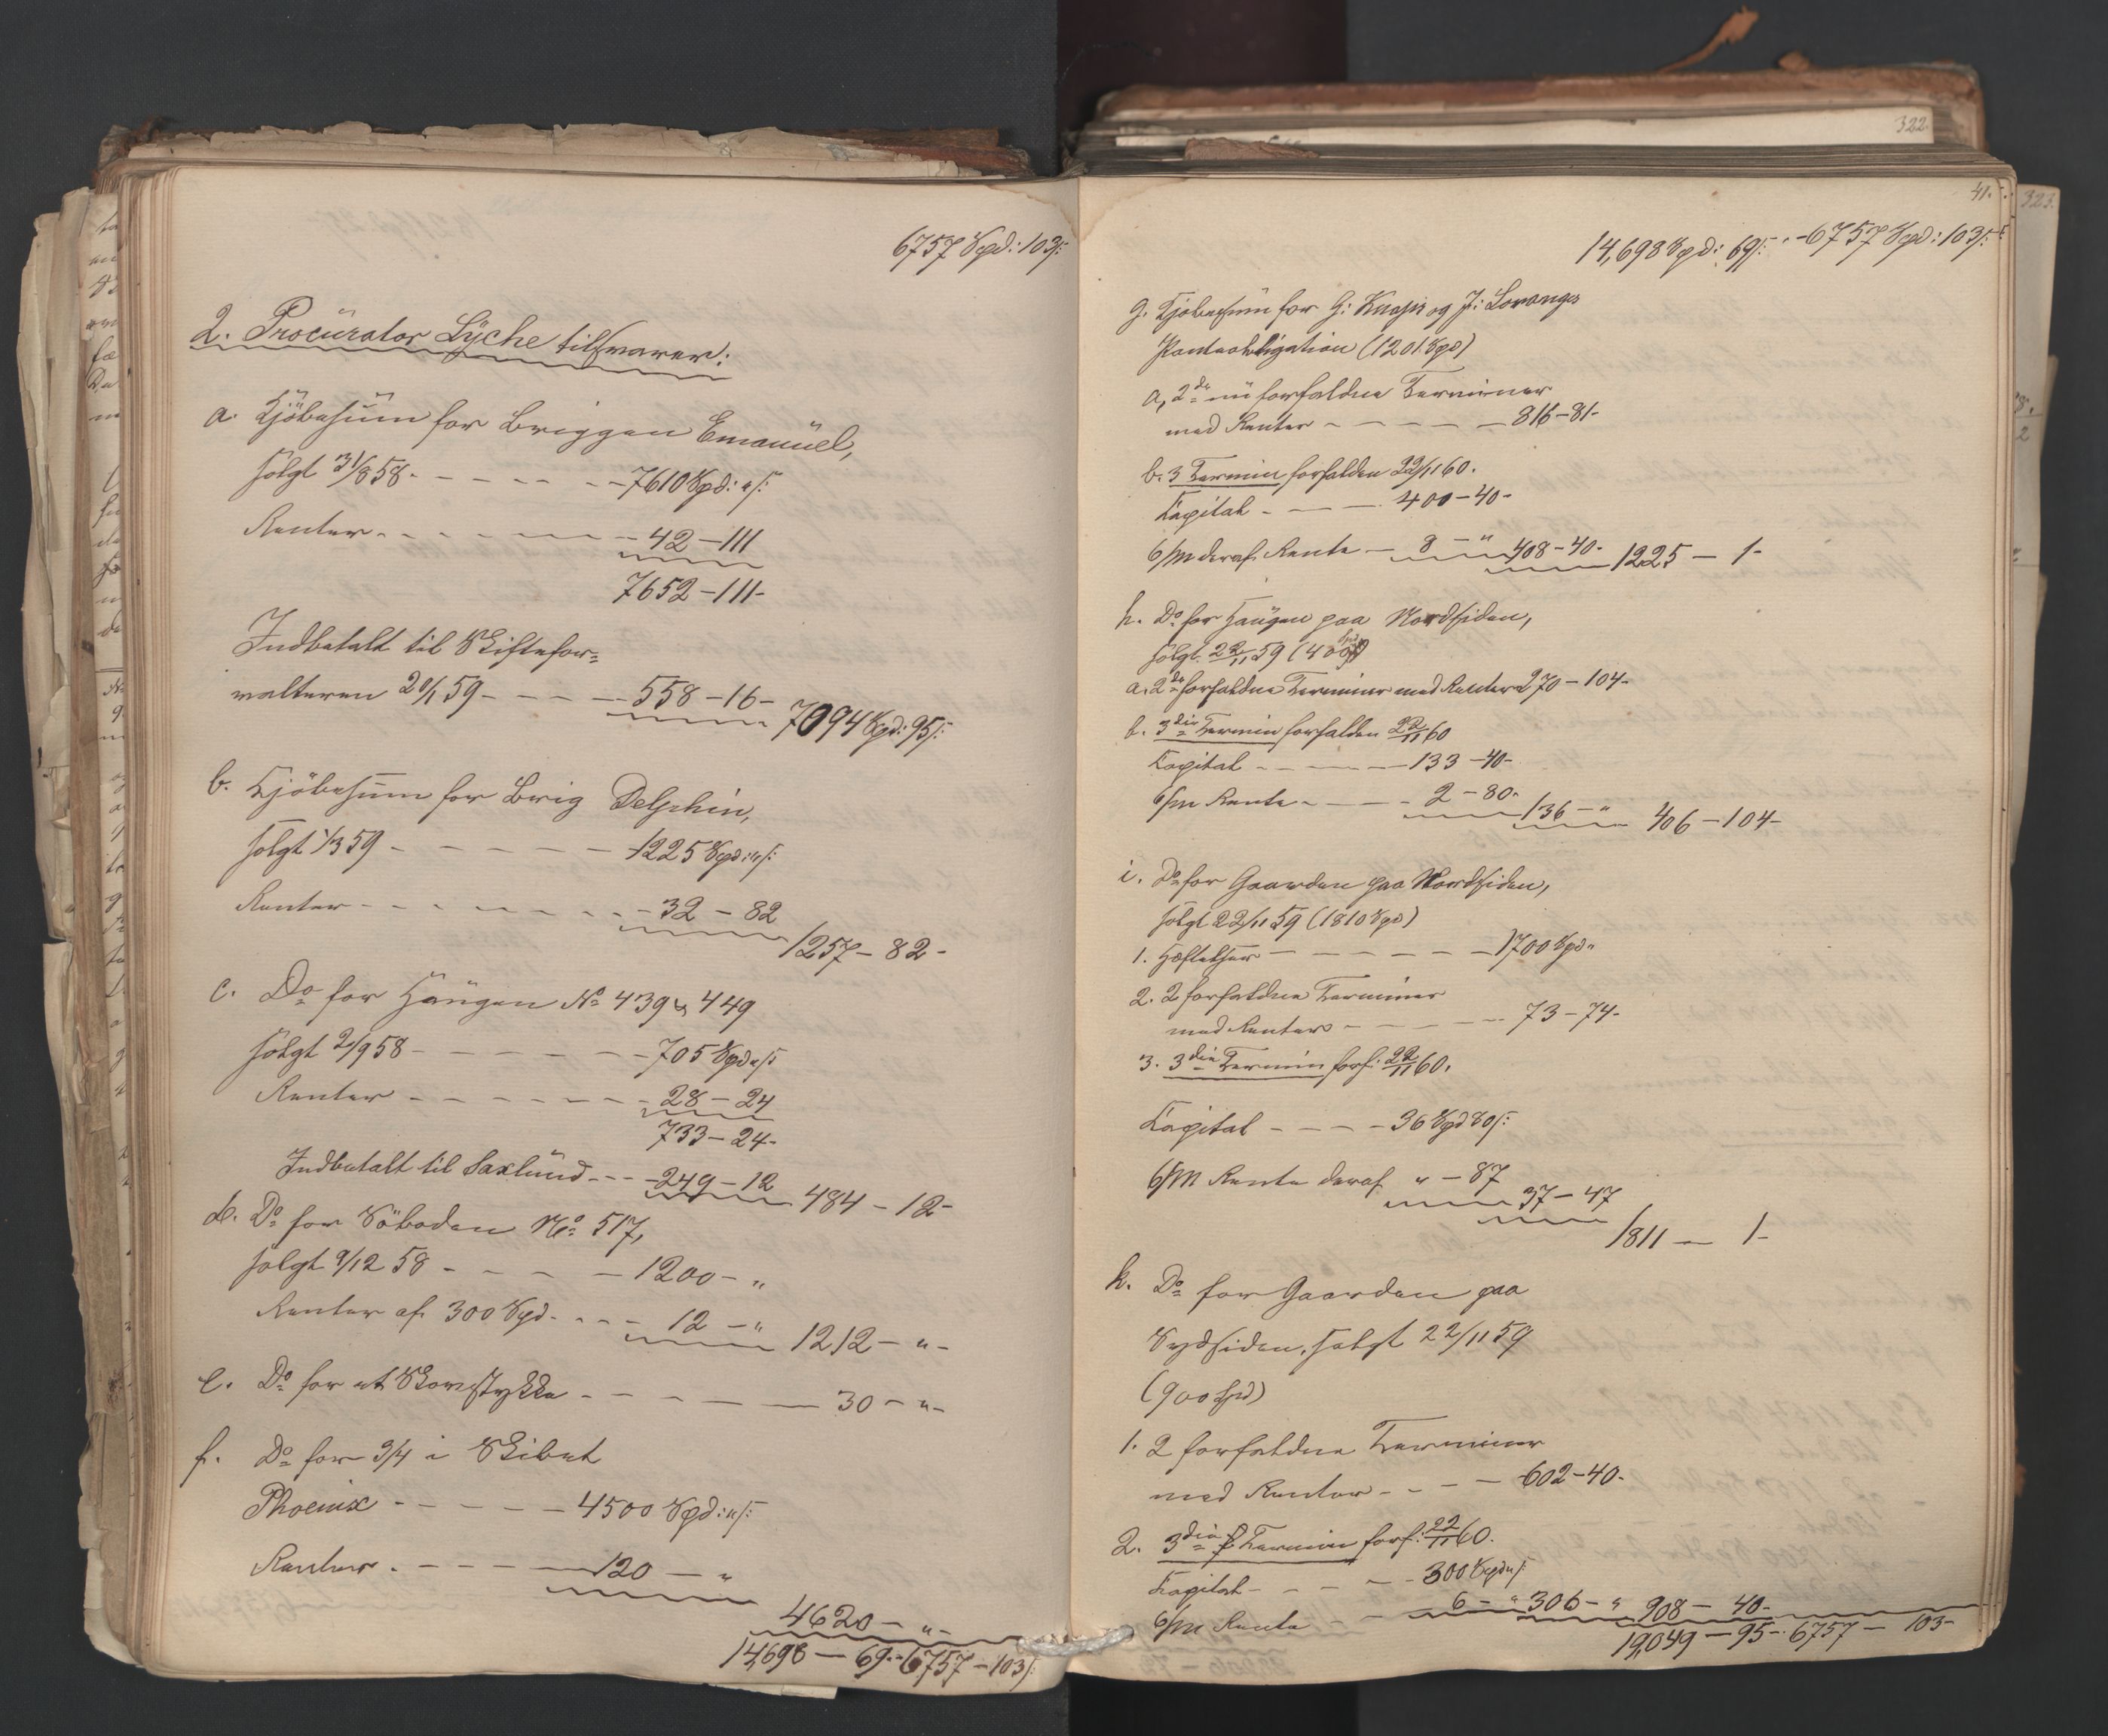 6757 Spd: 103ſ:
2. Procürator Lÿche tilsvarer:
a. Kjöbesüm for Briggen Emanüel,
solgt 31/8 58 - - - - - 7610 Spd: "ſ:
Renter - - - - - - - 42 - 111
7652 - 111 -
Indbetalt til Skiftefor=
valteren 20/1 59 - - - - 558 - 16 - 7094 Spd: 95ſ:
b. Kjöbesum for Brig Delphin,
solgt 1/3 59 - - - - - 1225 Spd: "ſ:
Renter - - - - - - - 32 - 82
1257 - 82 -
c. Do for Haügen No 439 & 449
solgt 2/9 58 - - - - - 705 Spd "ſ:
Renter - - - - - - - 28 - 24
733 - 24 -
Indbetalt til Saxlünd - - - 249 - 12 484 - 12 -
d. Do for Söboden No 517,
solgt 9/12 58 - - - - 1200 - "
Renter af 300 Spd - - - - 12 - " 1212 - " -
e. Do for et Skovstykke - - - - - 30 - " -
f. Do for 3/4 i Skibet
Phoenix - - - - - 4500 Spd: "ſ:
Renter - - - - - 120 - "
4620 - " -
14,698 - 69 - 6757 - 103ſ:
322.
41.
323.
14,698 Spd: 69ſ: - 6757 Spd: 103ſ:
g. Kjöbesum for G: Knaps og J: Lovanger
Panteobligation (1201 Spd)
a, 2de nü forfaldne Terminer
med Renter - - - - - 816 - 81 -
b. 3 Termin forfalden 22/11 60.
Kapital - - - - 400 - 40 -
6/M deraf Rente - 8 - " 408 - 40 - 1225 - 1 -
h. Do for Haügen paa Nordsiden,
solgt 22/11 59 (400 Spd)
a. 2de forfaldne Terminer med Renter 270 - 104 -
b. 3die Termin forfalden 22/11 60
Kapital - - - - - 133 - 40 -
6/M Rente - - - - 2 - 80 - 136 - " 406 - 104 -
i. Do for Gaarden paa Nordsiden,
solgt 22/11 59 (1810 Spd)
1. Heftelser - - - - - - 1700 Spd "
2. 2 forfaldne Terminer
med Renter - - - - - 73 - 74 -
3. 3die Termin forf. 22/11 60.
Kapital - - - - 36 Spd 80ſ:
6/M Rente deraf " - 87
37 - 47
1811 - 1 -
k. Do for Gaarden paa
Sydsiden, solgt 22/11 59
(900 Spd)
1. 2 forfaldne Terminer
med Renter - - - - 602 - 40 -
2. 3die Termin forf: 22/11 60.
Kapital - - - - - 300 Spd "ſ:
6/M Rente - - - 6 - " 306 - " 908 - 40 -
19,049 - 95 - 6757 - 103 -